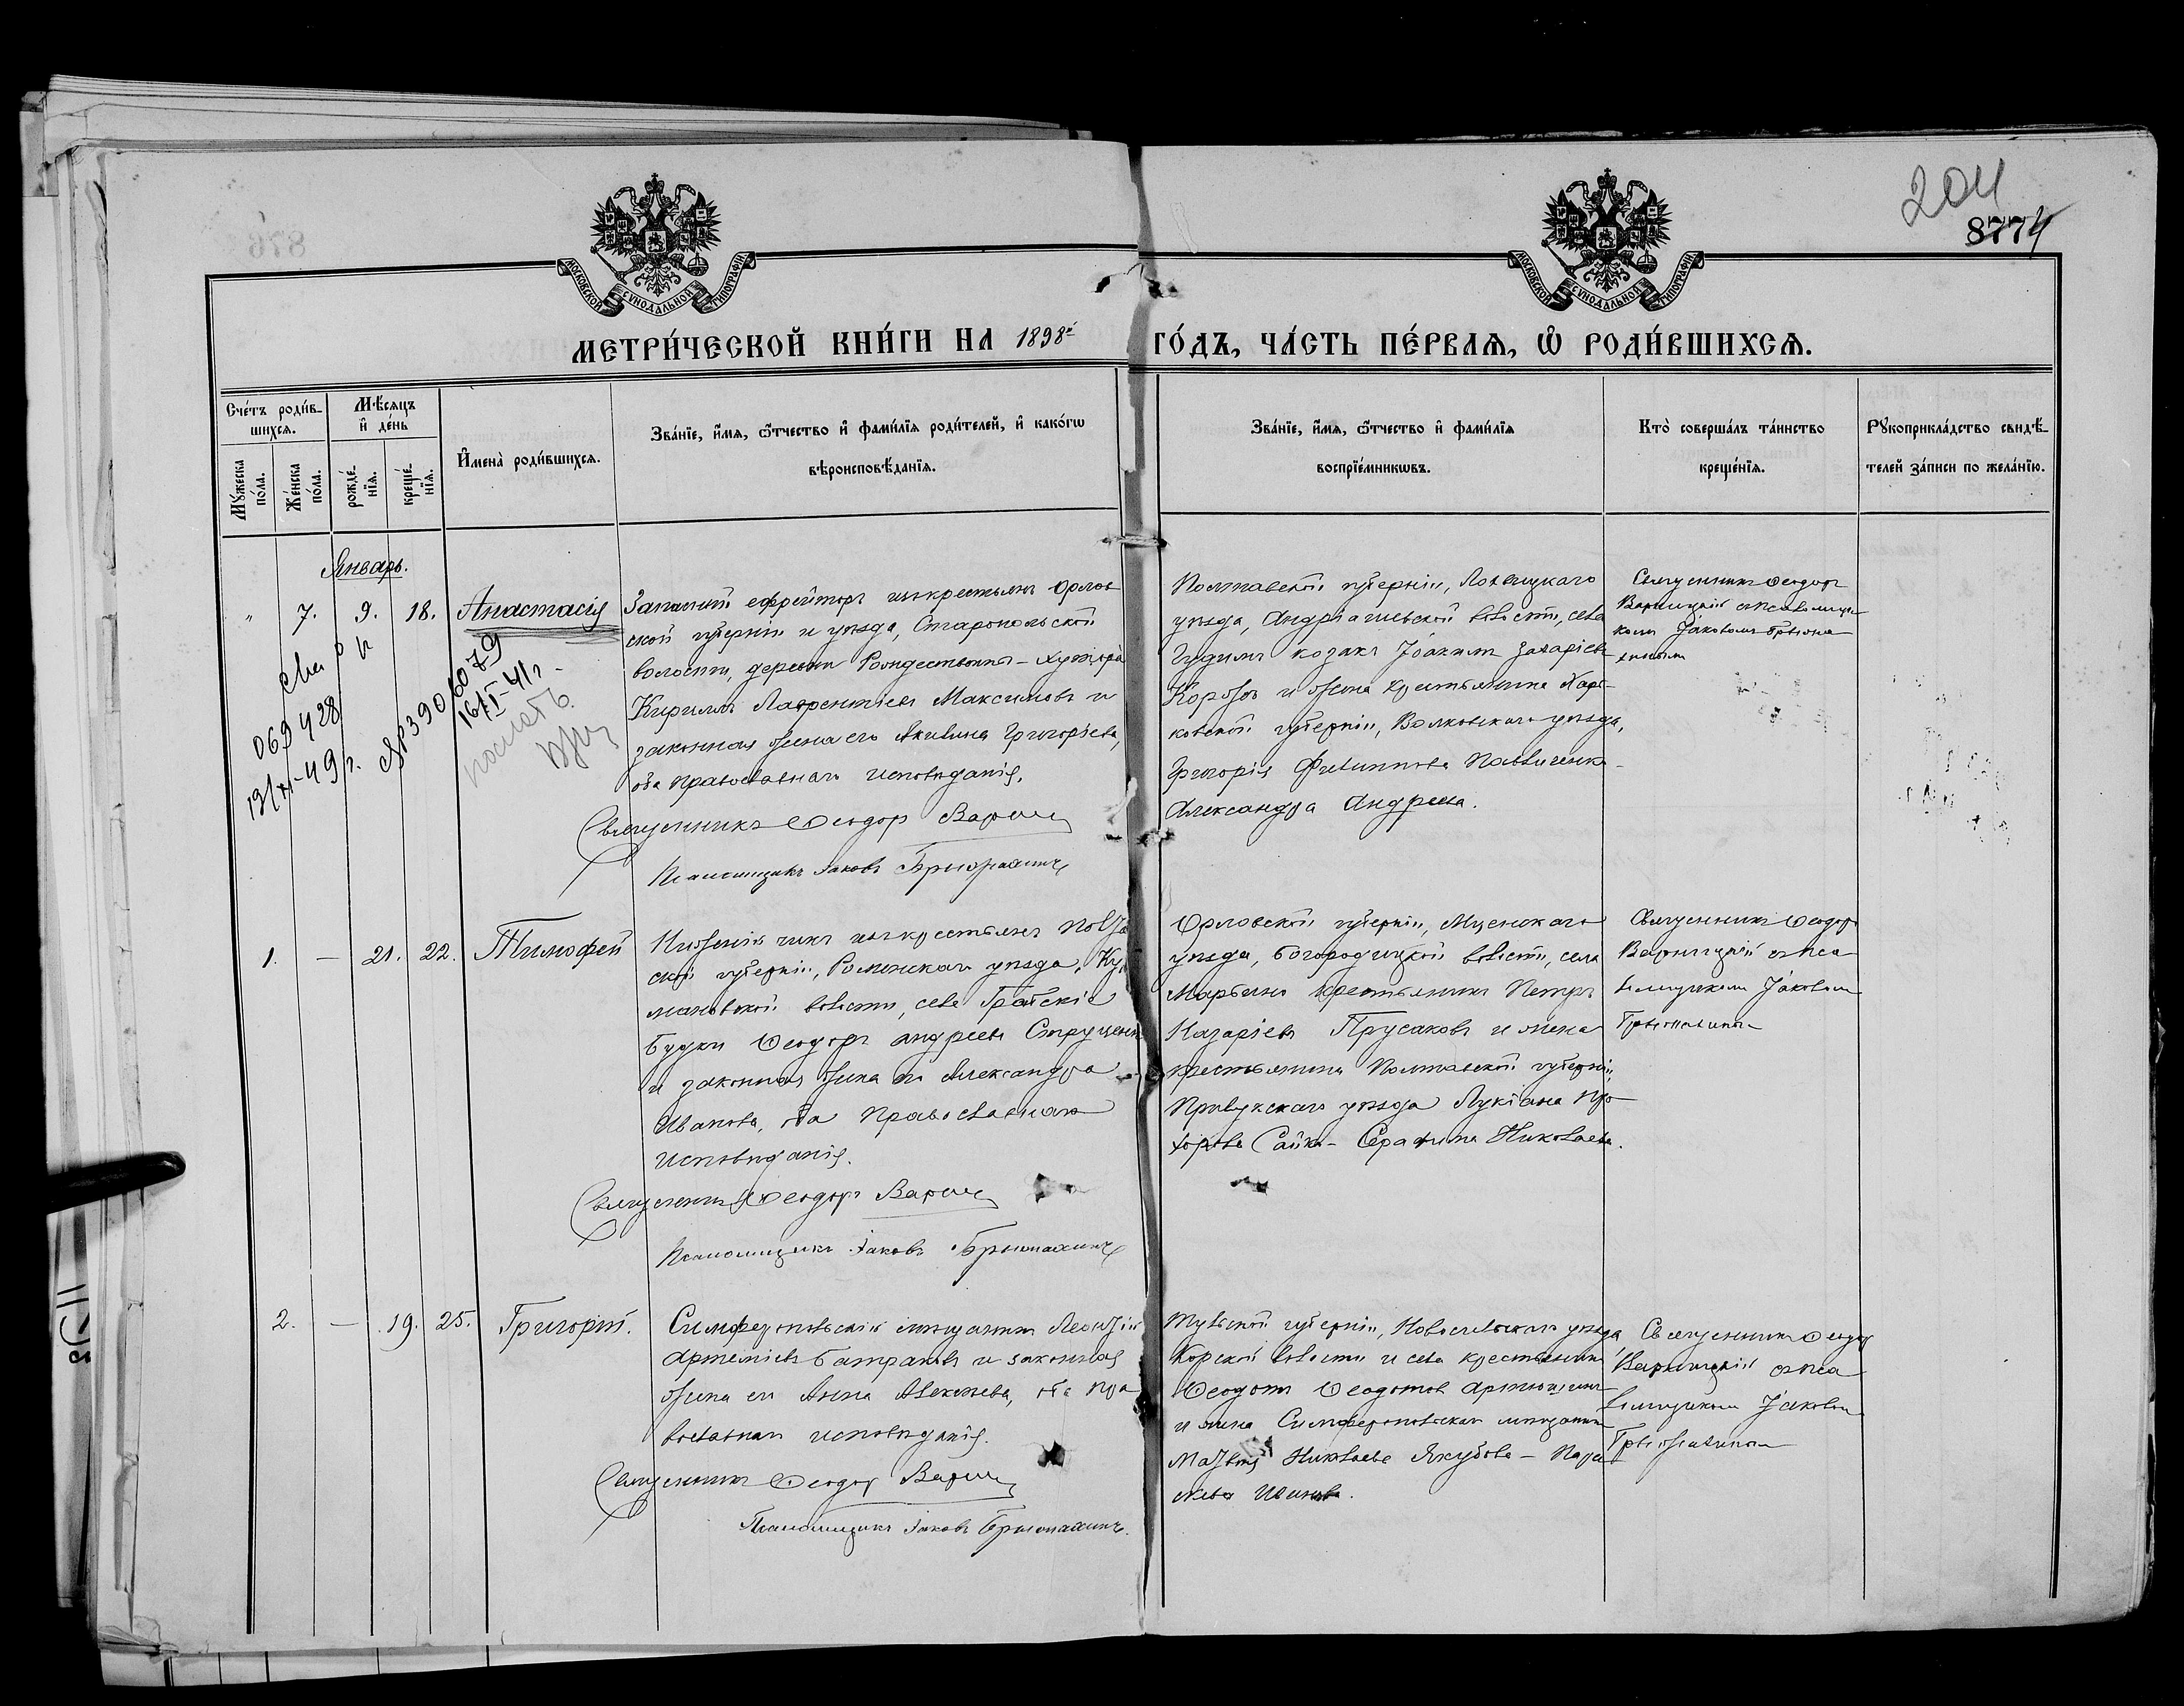 204
8774
876
МОСКОВСКОЙ СѴНОДАЛЬНОЙ ТИПОГРАФІИ
МОСКОВСКОЙ СѴНОДАЛЬНОЙ ТИПОГРАФІИ
МЕТРИ́ЧЕСКОЙ КНИ́ГИ НА 1898й ГО́ДЪ, ЧА́СТЬ ПЕ́РВАѦ, Ѡ҆ РОДИ́ВШИХСѦ.
Сче́тъ роди́в-
шихсѧ.
Мꙋ́жеска по́ла.
Же́нска по́ла.
Мѣ́сѧцъ и҆ де́нь
рожде́-нїѧ.
креще́-нїѧ.
И҆мена̀ роди́вшихсѧ.
Зва́нїе, и҆́мѧ, ѻ҆́тчество и҆ фами́лїѧ роди́телей, и҆ како́гѡ
вѣроисповѣ́данїѧ.
Зва́нїе, и҆́мѧ, ѻ҆́тчество и҆ фами́лїѧ
воспрїе́мникѡвъ.
Кто̀ соверша́лъ та́инство
креще́нїѧ.
Рꙋкоприкла́дство свидѣ́-
телей за́писи по жела́нїю.
Январь.
" 7. 9. 18. Анастасія
Запасный ефрейторъ изъ крестьянъ Орлов
ской губерніи и уѣзда, Старопольской
волости, деревни Рождественна-Хутора
Кириллъ Лаврентіевъ Максимовъ и
законная жена его Акилина Григоріева,
оба православнаго исповѣданія.
Священникъ Ѳеодоръ
Псаломщикъ Іаковъ
Полтавской губерніи, Лохвицкаго
уѣзда, Андріашевской волости, села
Гудимъ козакъ Іоакимъ Захаріевъ
и жена крестьянина Харь-
ковской губерніи, Волковскаго уѣзда,
Григорія Филиппова
Александра Андреева.
Священникъ Ѳеодоръ
Варницкій съ псаломщи-
комъ Іаковомъ
069428
13/XI-49г.
390
16/I-41г.
1. — 21. 22. Тимофей
изъ крестьянъ Полта
ской губерніи, Роменскаго уѣзда,
мановской волости, села
Будки Ѳеодоръ Андреевъ
и законная жена его Александра
Иванова, оба православнаго
исповѣданія.
Священникъ Ѳеодоръ
Псаломщикъ Іаковъ
Орловской губерніи, Мценскаго
уѣзда, Богородицкой волости, села
Марьино крестьянинъ Петръ
Назаріевъ Прусаковъ и жена
крестьянина Полтавской губерніи,
Прилукскаго уѣзда Лукіана Про
хорова Сайка- Серафима Николаева.
Священникъ Ѳеодоръ
Варницкій съ пса
ломщикомъ Іаковомъ
2. — 19. 25. Григорій.
Симферопольскій мѣщанинъ Леонтій
Артеміевъ Батраковъ и законная
жена его Анна Алексѣева, оба пра
вославнаго исповѣданія.
Священникъ Ѳеодоръ
Псаломщикъ Іаковъ
Тульской губерніи, Новосильскаго уѣзда
волости и села крестьянинъ
Ѳеодотъ Ѳеодотовъ
и жена Симферопольскаго мѣщанина
Матвѣя Николаева Якубова - Пара
скева Иванова.
Священникъ Ѳеодоръ
Варницкій съ пса
ломщикомъ Іаковомъ